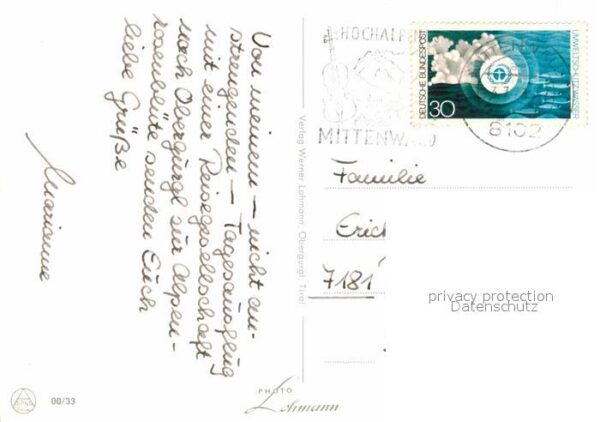 Von meinem – nicht an-
strengenden – Tagesausflug
mit einer Reisegesellschaft
nach Obergurgl zur Alpen-
rosenblüte senden Euch
liebe Grüße
Marianne
Verlag Werner Lohmann Obergurgl, Tirol
00/33
PHOTO
Lohmann
HOCHALPEN
MITTENWALD
8102
DEUTSCHE BUNDESPOST
30
UMWELTSCHUTZ: WASSER
Familie
Erich
7181
privacy protection
Datenschutz